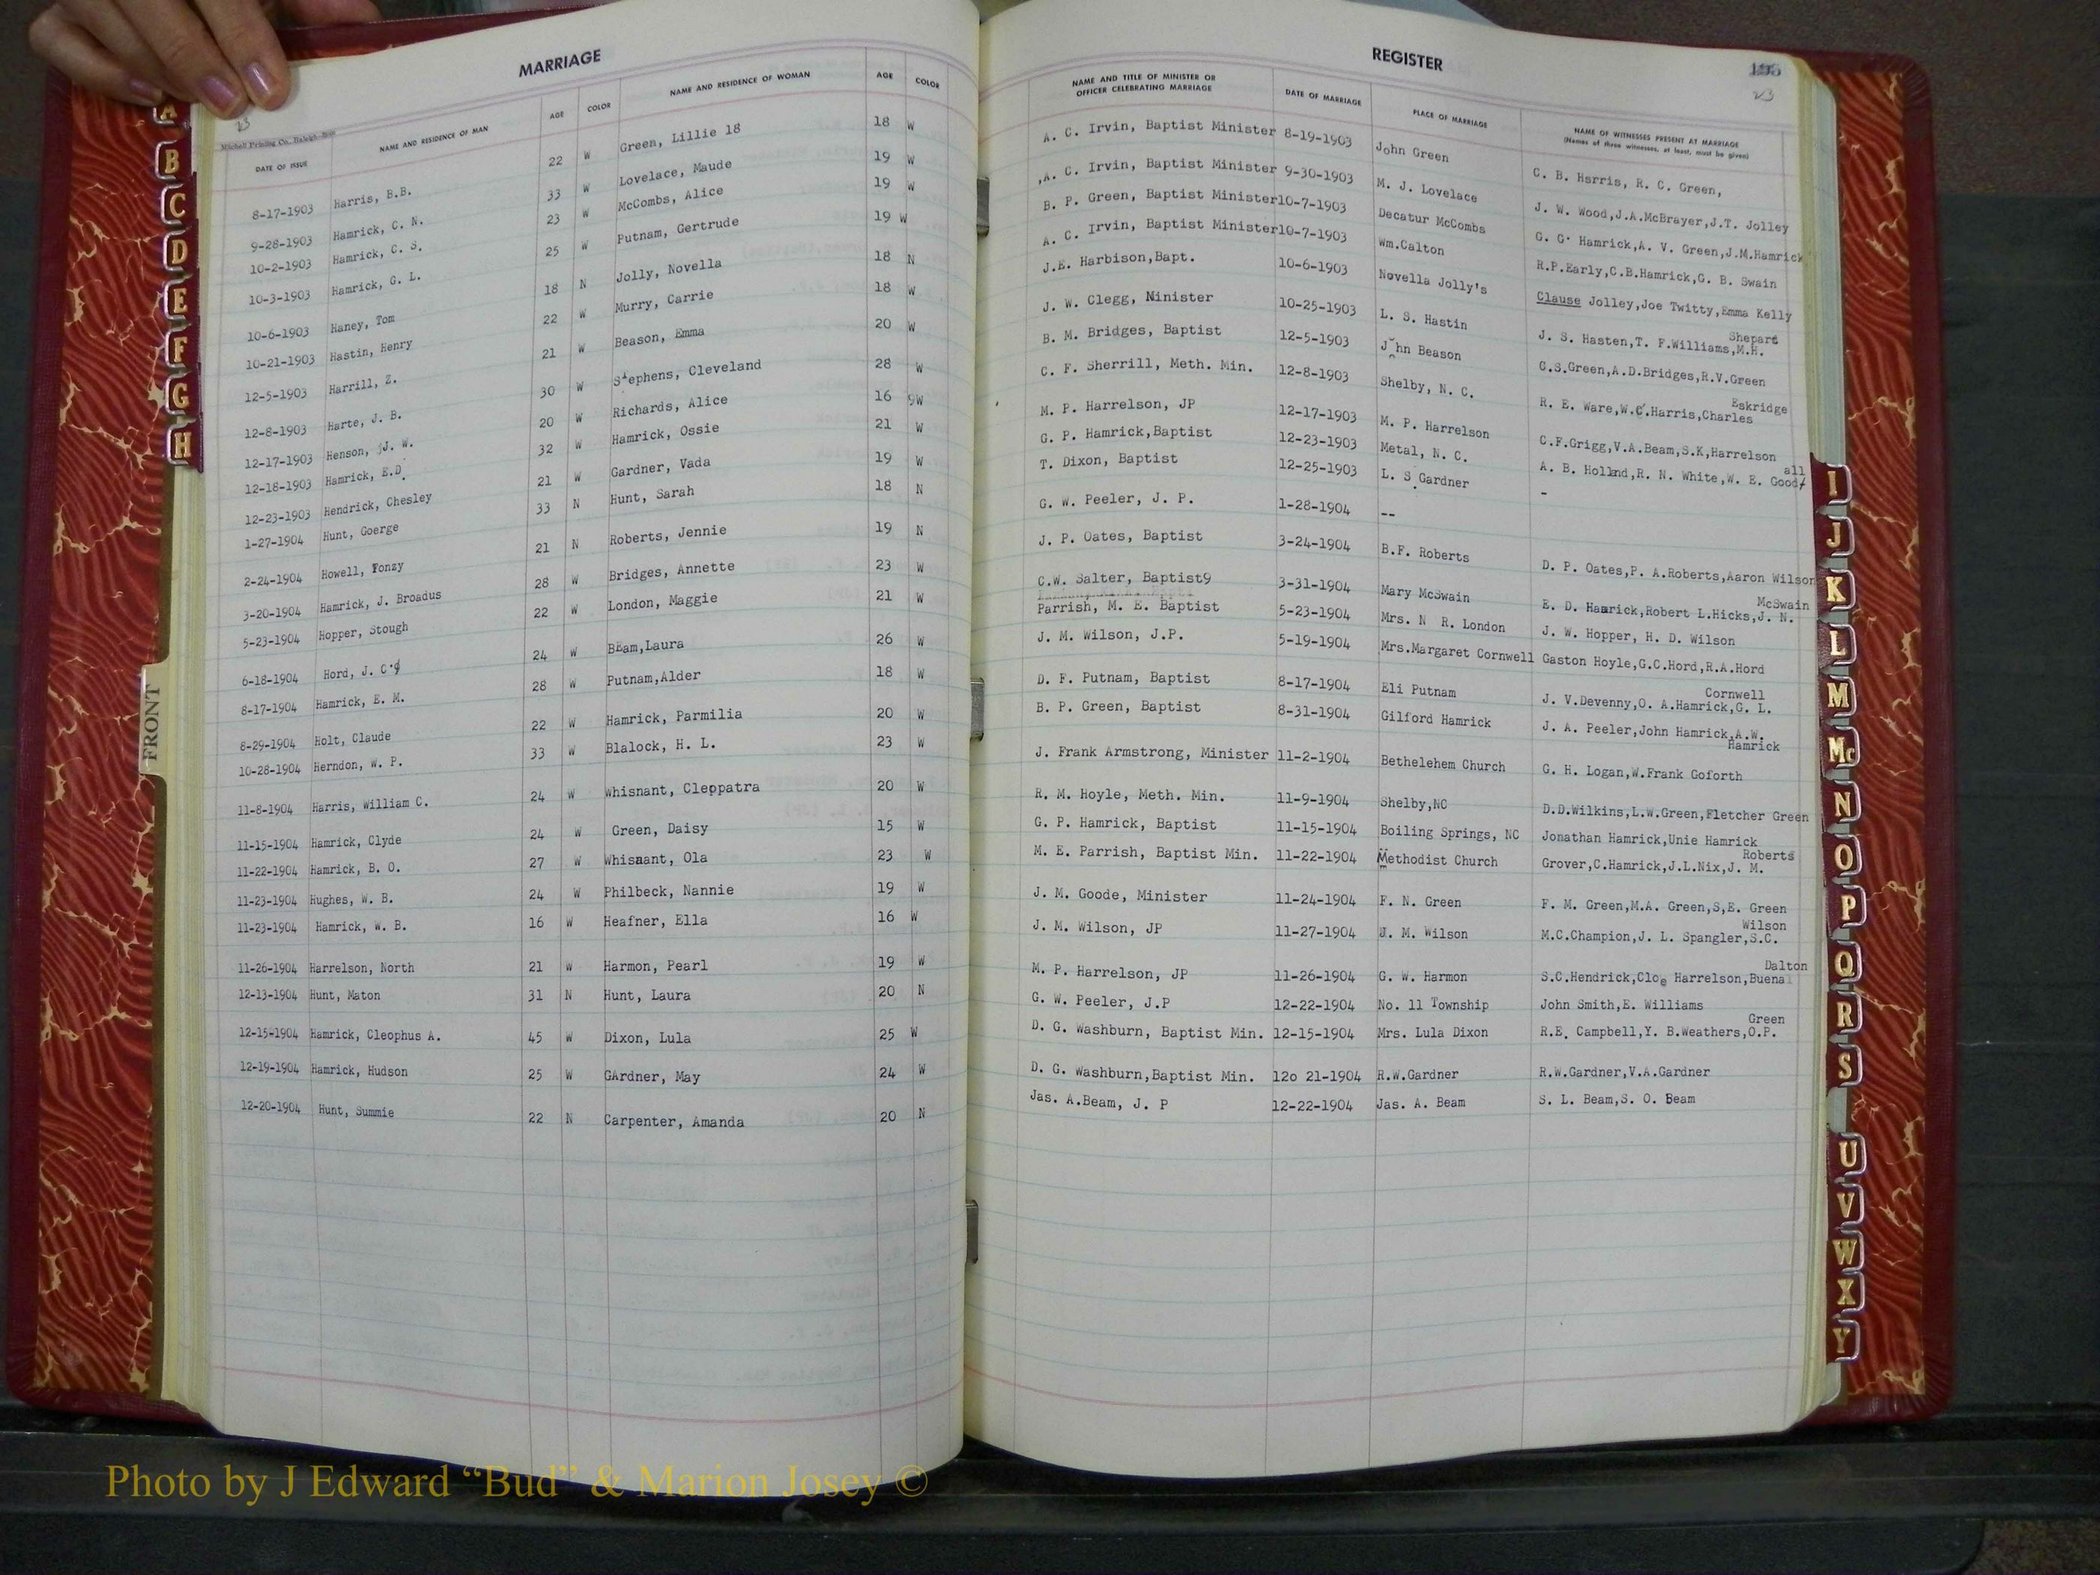 MARRIAGE
DATE OF ISSUE NAME AND RESIDENCE OF MAN AGE COLOR NAME AND RESIDENCE OF WOMAN AGE COLOR
8-17-1903 Harris, B.B. 22 W Green, Lillie 18 18 W
9-28-1903 Hamrick, C. N. 33 W Lovelace, Maude 19 W
10-2-1903 Hamrick, C. S. 23 W McCombs, Alice 19 W
10-3-1903 Hamrick, G. L. 25 W Putnam, Gertrude 19 W
10-6-1903 Haney, Tom 18 N Jolly, Novella 18 N
10-21-1903 Hastin, Henry 22 W Murry, Carrie 18 W
12-5-1903 Harrill, Z. 21 W Beason, Emma 20 W
12-8-1903 Harte, J. B. 30 W Stephens, Cleveland 28 W
12-17-1903 Henson, J. W. 20 W Richards, Alice 16 9W
12-18-1903 Hamrick, E.D. 32 W Hamrick, Ossie 21 W
12-23-1903 Hendrick, Chesley 21 W Gardner, Vada 19 W
1-27-1904 Hunt, Goerge 33 N Hunt, Sarah 18 N
2-24-1904 Howell, Fonzy 21 N Roberts, Jennie 19 N
3-20-1904 Hamrick, J. Broadus 28 W Bridges, Annette 23 W
5-23-1904 Hopper, Stough 22 W London, Maggie 21 W
6-18-1904 Hord, J. C. 24 W BEam,Laura 26 W
8-17-1904 Hamrick, E. M. 28 W Putnam,Alder 18 W
8-29-1904 Holt, Claude 22 W Hamrick, Parmilia 20 W
10-28-1904 Herndon, W. P. 33 W Blalock, H. L. 23 W
11-8-1904 Harris, William C. 24 W Whisnant, Cleopatra 20 W
11-15-1904 Hamrick, Clyde 24 W Green, Daisy 15 W
11-22-1904 Hamrick, B. O. 27 W Whisnant, Ola 23 W
11-23-1904 Hughes, W. B. 24 W Philbeck, Nannie 19 W
11-23-1904 Hamrick, W. B. 16 W Heafner, Ella 16 W
11-26-1904 Harrelson, North 21 W Harmon, Pearl 19 W
12-13-1904 Hunt, Maton 31 N Hunt, Laura 20 N
12-15-1904 Hamrick, Cleophus A. 45 W Dixon, Lula 25 W
12-19-1904 Hamrick, Hudson 25 W GArdner, May 24 W
12-20-1904 Hunt, Summie 22 N Carpenter, Amanda 20 N
REGISTER
NAME AND TITLE OF MINISTER OR OFFICER CELEBRATING MARRIAGE DATE OF MARRIAGE PLACE OF MARRIAGE NAME OF WITNESSES PRESENT AT MARRIAGE
(Names of three witnesses, at least, must be given)
A. C. Irvin, Baptist Minister 8-19-1903 John Green C. B. Harris, R. C. Green,
A. C. Irvin, Baptist Minister 9-30-1903 M. J. Lovelace J. W. Wood,J.A.McBrayer,J.T. Jolley
B. P. Green, Baptist Minister10-7-1903 Decatur McCombs G. G. Hamrick,A. V. Green,J.M.Hamrick
A. C. Irvin, Baptist Minister10-7-1903 Wm.Calton R.P.Early,C.B.Hamrick,G. B. Swain
J.E. Harbison,Bapt. 10-6-1903 Novella Jolly's Clause Jolley,Joe Twitty,Emma Kelly
J. W. Clegg, Ninister 10-25-1903 L. S. Hastin J. S. Hasten,T. F.Williams,M.H. Shepard
B. M. Bridges, Baptist 12-5-1903 John Beason C.S.Green,A.D.Bridges,R.V.Green
C. F. Sherrill, Meth. Min. 12-8-1903 Shelby, N. C. R. E. Ware,W.C.Harris,Charles Eskridge
M. P. Harrelson, JP 12-17-1903 M. P. Harrelson C.F.Grigg,V.A.Beam,S.K,Harrelson
G. P. Hamrick,Baptist 12-23-1903 Metal, N. C. A. B. Holland,R. N. White,W. E. Good/ all
T. Dixon, Baptist 12-25-1903 L. S Gardner -
G. W. Peeler, J. P. 1-28-1904 --
J. P. Oates, Baptist 3-24-1904 B.F. Roberts D. P. Oates,P. A.Roberts,Aaron Wilson
C.W. Salter, Baptist9 3-31-1904 Mary McSwain E. D. Hamrick,Robert L.Hicks,J. N. McSwain
Parrish, M. E. Baptist 5-23-1904 Mrs. N R. London J. W. Hopper, H. D. Wilson
J. M. Wilson, J.P. 5-19-1904 Mrs.Margaret Cornwell Gaston Hoyle,G.C.Hord,R.A.Hord
D. F. Putnam, Baptist 8-17-1904 Eli Putnam J. V.Devenny,O. A.Hamrick,G. L. Cornwell
B. P. Green, Baptist 8-31-1904 Gilford Hamrick J. A. Peeler,John Hamrick,A.W. Hamrick
J. Frank Armstrong, Minister 11-2-1904 Bethelehem Church G. H. Logan,W.Frank Goforth
R. M. Hoyle, Meth. Min. 11-9-1904 Shelby,NC D.D.Wilkins,L.W.Green,Fletcher Green
G. P. Hamrick, Baptist 11-15-1904 Boiling Springs, NC Jonathan Hamrick,Unie Hamrick
M. E. Parrish, Baptist Min. 11-22-1904 Methodist Church Grover,C.Hamrick,J.L.Nix,J. M. Roberts
J. M. Goode, Minister 11-24-1904 F. N. Green F. M. Green,M.A. Green,S,E. Green
J. M. Wilson, JP 11-27-1904 J. M. Wilson M.C.Champion,J. L. Spangler,S.C. Wilson
M. P. Harrelson, JP 11-26-1904 G. W. Harmon S.C.Hendrick,Cloe Harrelson,Buena Dalton
G. W. Peeler, J.P 12-22-1904 No. 11 Township John Smith,E. Williams
D. G. Washburn, Baptist Min. 12-15-1904 Mrs. Lula Dixon R.E. Campbell,Y. B.Weathers,O.P. Green
D. G. Washburn,Baptist Min. 12o 21-1904 R.W.Gardner R.W.Gardner,V.A.Gardner
Jas. A.Beam, J. P 12-22-1904 Jas. A. Beam S. L. Beam,S. O. Beam
A
B
C
D
E
F
G
H
FRONT
I
J
K
L
M
Mc
N
O
P
Q
R
S
U
V
W
X
Y
Photo by J Edward “Bud” & Marion Josey ©